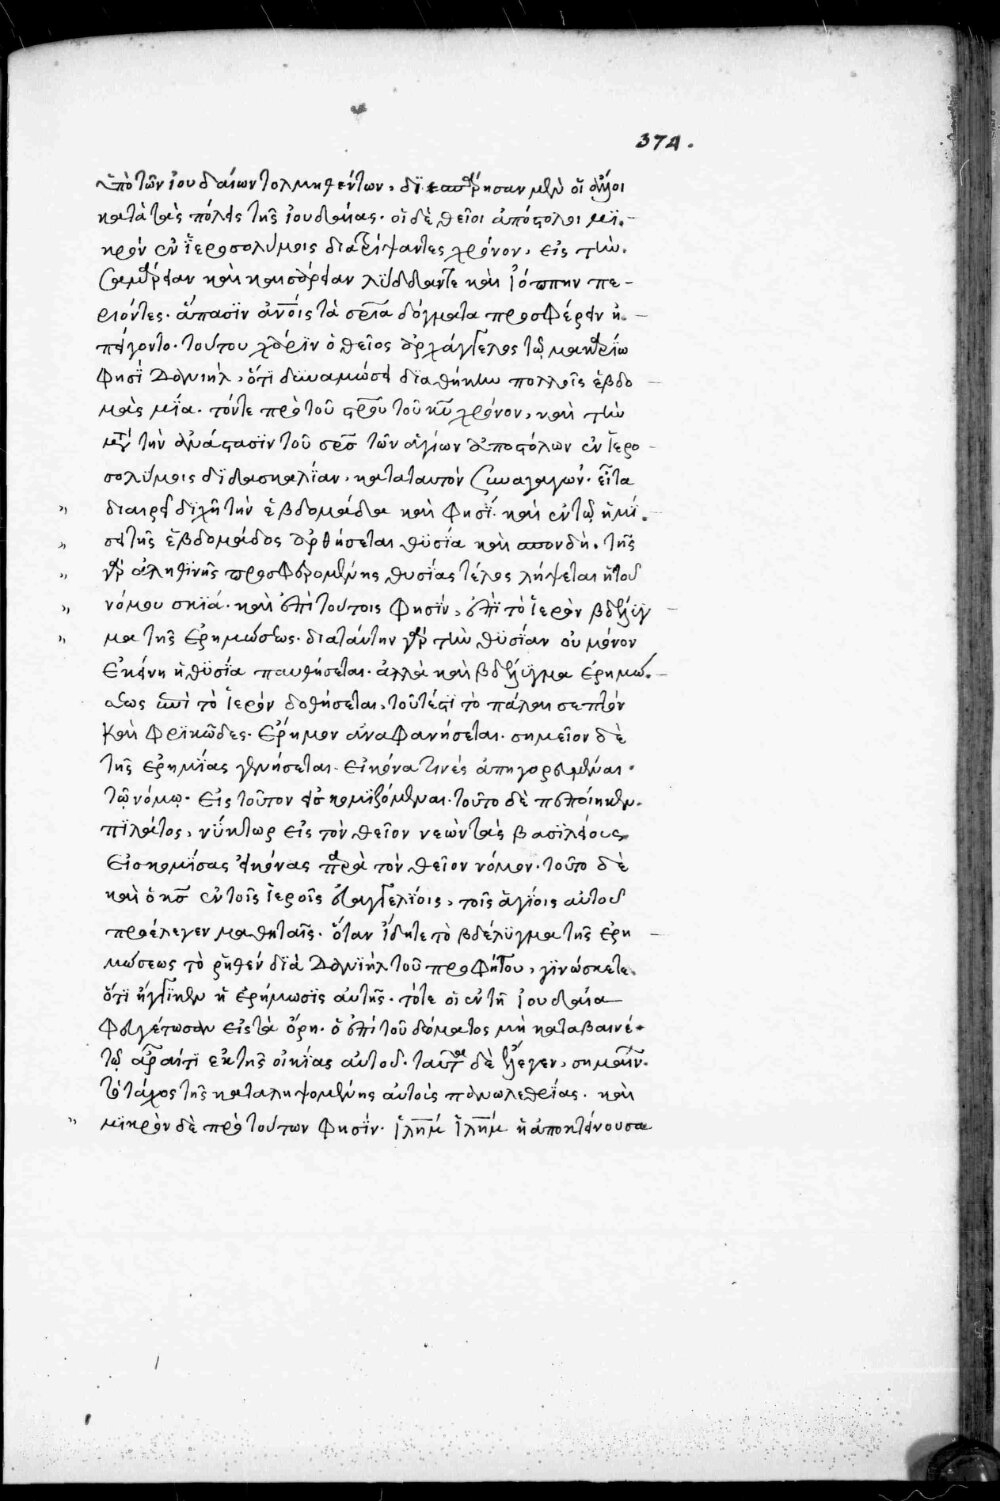 374.
ὑπὸ τῶν ἰουδαίων τολμηθέντων, διεσπάρησαν μὲν οἱ ἄλλοι
κατὰ τὰς πόλεις τῆς ἰουδαίας. οἱ δὲ θεῖοι ἀπόστολοι μι-
κρὸν ἐν ἱεροσολύμοις διατρίψαντες χρόνον, εἰς τὴν
σαμάρειαν καὶ καισάρειαν λύδδαν τε καὶ ἰόππην πε-
ριόντες. ἅπασιν ἀνοις τὰ σρια δόγματα προσφέρειν ἠ-
πείγοντο. τούτου χάριν ὁ θεῖος ἀρχάγγελος τῷ μακαρίῳ
φησὶ δανιήλ, ὅτι δυναμώσει διαθήκην πολλοῖς ἑβδο-
μὰς μία. τόν τε πρὸ τοῦ στρου τοῦ κυ χρόνον, καὶ τὴν
μετὰ τὴν ἀνάστασιν τοῦ σρσ τῶν ἁγίων ἀποστόλων ἐν ἱερο-
σολύμοις διδασκαλίαν, κατὰ ταυτὸν συναγαγών. εἶτα
" διαιρεῖ διχῆ τὴν ἑβδομάδα καὶ φησί. καὶ ἐν τῷ ἡμί-
" σει τῆς ἑβδομάδος ἀρθήσεται θυσία καὶ σπονδή. τῆς
" γὰρ ἀληθινῆς προσφερομένης θυσίας τέλος λήψεται ἡ τοῦ
" νόμου σκιά. καὶ ἐπὶ τούτοις φησίν, ἐπὶ τὸ ἱερὸν βδέλυγ-
" μα τῆς ἐρημώσεως. διὰ ταύτην γὰρ τὴν θυσίαν οὐ μόνον
ἐκείνη ἡ θυσία παυθήσεται. ἀλλὰ καὶ βδέλυγμα ἐρημώ-
σεως ἐπὶ τὸ ἱερὸν δοθήσεται, τουτέστι τὸ πάλαι σεπτὸν
καὶ φρικῶδες. ἔρημον ἀναφανήσεται. σημεῖον δὲ
τῆς ἐρημίας γενήσεται. εἰκόνα τινὲς ἀπηγορευμέναι.
τῷ νόμῳ. εἰς τοῦτον εἰσκομιζόμεναι. τοῦτο δὲ πεποίηκεν
πιλάτος, νύκτωρ εἰς τὸν θεῖον νεὼν τὰς βασιλείους
εἰσκομίσας εἰκόνας παρὰ τὸν θεῖον νόμον. τοῦτο δὲ
καὶ ὁ κσ ἐν τοῖς ἱεροῖς εὐαγγελίοις, τοῖς ἁγίοις αὐτοῦ
προέλεγεν μαθηταῖς. ὅταν ἴδητε τὸ βδέλυγμα τῆς ἐρη-
μώσεως τὸ ῥηθὲν διὰ δανιὴλ τοῦ προφήτου, γινώσκετε
ὅτι ἤγγικεν ἡ ἐρήμωσις αὐτῆς. τότε οἱ ἐν τῇ ἰουδαία
φευγέτωσαν εἰς τὰ ὄρη. ὁ ἐπὶ τοῦ δόματος μὴ καταβαινέ-
τω ἆραί τι ἐκ τῆς οἰκίας αὐτοῦ. ταῦτα δὲ ἔλεγεν, σημαίνων
τὸ τάχος τῆς καταληψομένης αὐτοὺς πανωλεθρίας. καὶ
" μικρὸν δὲ πρὸ τούτων φησίν. ἱλημ ἱλημ ἡ ἀποκτείνουσα